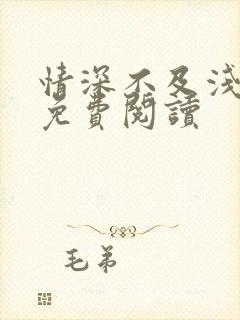 情深不及淺
免費閱讀
毛弟